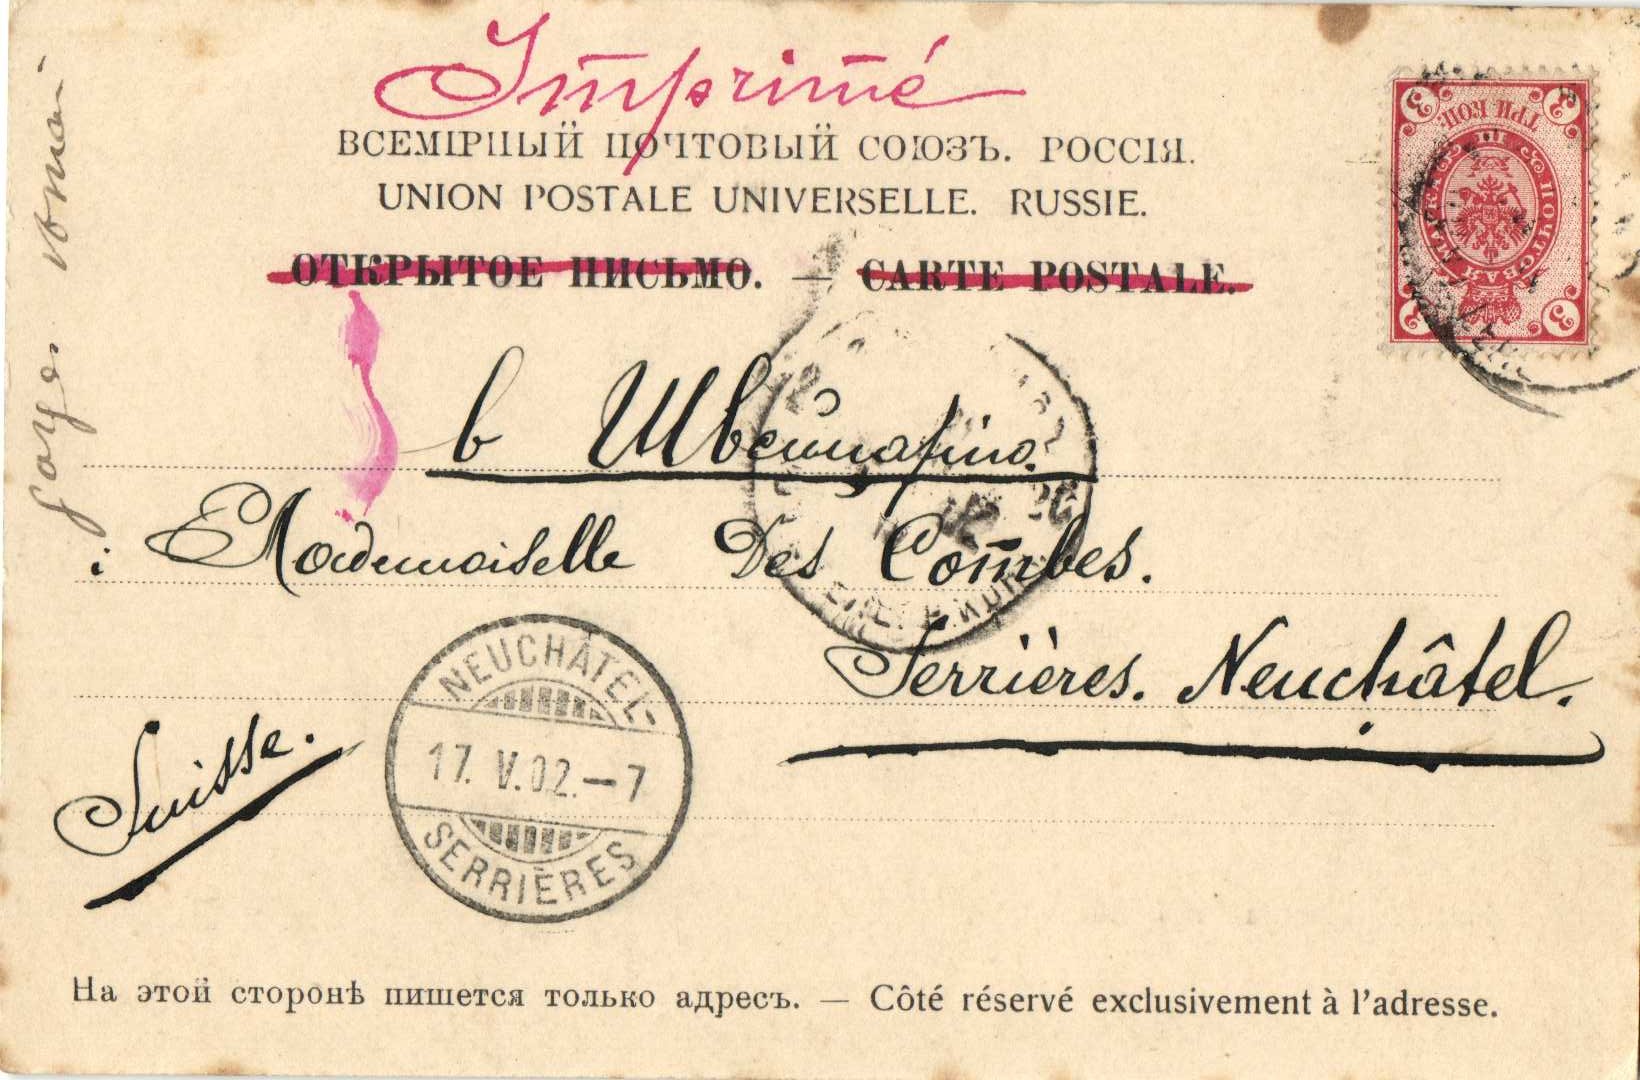 Imprimé
ВСЕМІРНЫЙ ПОЧТОВЫЙ СОЮЗЪ. РОССІЯ.
UNION POSTALE UNIVERSELLE. RUSSIE.
ОТКРЫТОЕ ПИСЬМО. — CARTE POSTALE.
3 ТРИ КОП. 3
ПОЧТОВАЯ МАРКА
3 3
в Швейцарію.
Mademoiselle Des Combes.
Serrières. Neuchâtel.
Suisse.
NEUCHÂTEL-
17. V. 02. – 7
SERRIÈRES
На этой сторонѣ пишется только адресъ. — Côté réservé exclusivement à l'adresse.